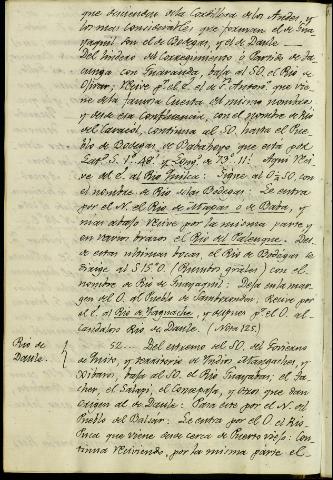 que descienden de la Cordillera de los Andes, y
los mas considerables que forman el de Gua-
yaquil son el de Bodegas, y el de Daule.
Del lindero del Corregimiento ó Partido de Ta-
cunga con Guaranda, baja al SO. el Rio de
Ojivar; recive pr. el E. el de Sn. Antonio que vie-
ne de la famosa Cuesta del mismo nombre,
y desde esta Confluencia, con el nombre de Rio
del Caracol, continúa al SO. hasta el Pue-
blo de Bodegas, de Babahoyo que esta por
Latd. S. 1°. 48' y Longd. de 73°. 11'. Aqui reci-
ve del E. al Rio Pinilca: Sigue al O¼SO, con
el nombre de Rio de las Bodegas: Le entra
por el N. el Rio de Mapan ó de Baba, y
mas abajo recive por la misma parte, y
en varios brazos el Rio del Palenque. Des-
de estas ultimas bocas, el Rio de Bodegas se
dirige al S 15° O. (Rumbos grales.) con el
nombre de Rio de Guayaquil: Deja en la mar-
gen del O. al Pueblo de Samborondon; Recive por
el E. al Rio de Yaguache, y despues pr. el O. al
Caudaloso Rio de Daule. (Nota 125)
Rio de
Daule.
52 — Del extremo del SO. del Govierno
de Quito, y territorio de Yndios Mangaches, y
baja al SO. el Rio Guayabas; el
y otros que dan
origen al de Daule: Pasa este por el N. del
Pueblo del Balsar: Le entra por el O. el Rio
Puca que viene desde cerca de Puerto viejo: Con-
tinúa reciviendo, por la misma parte el